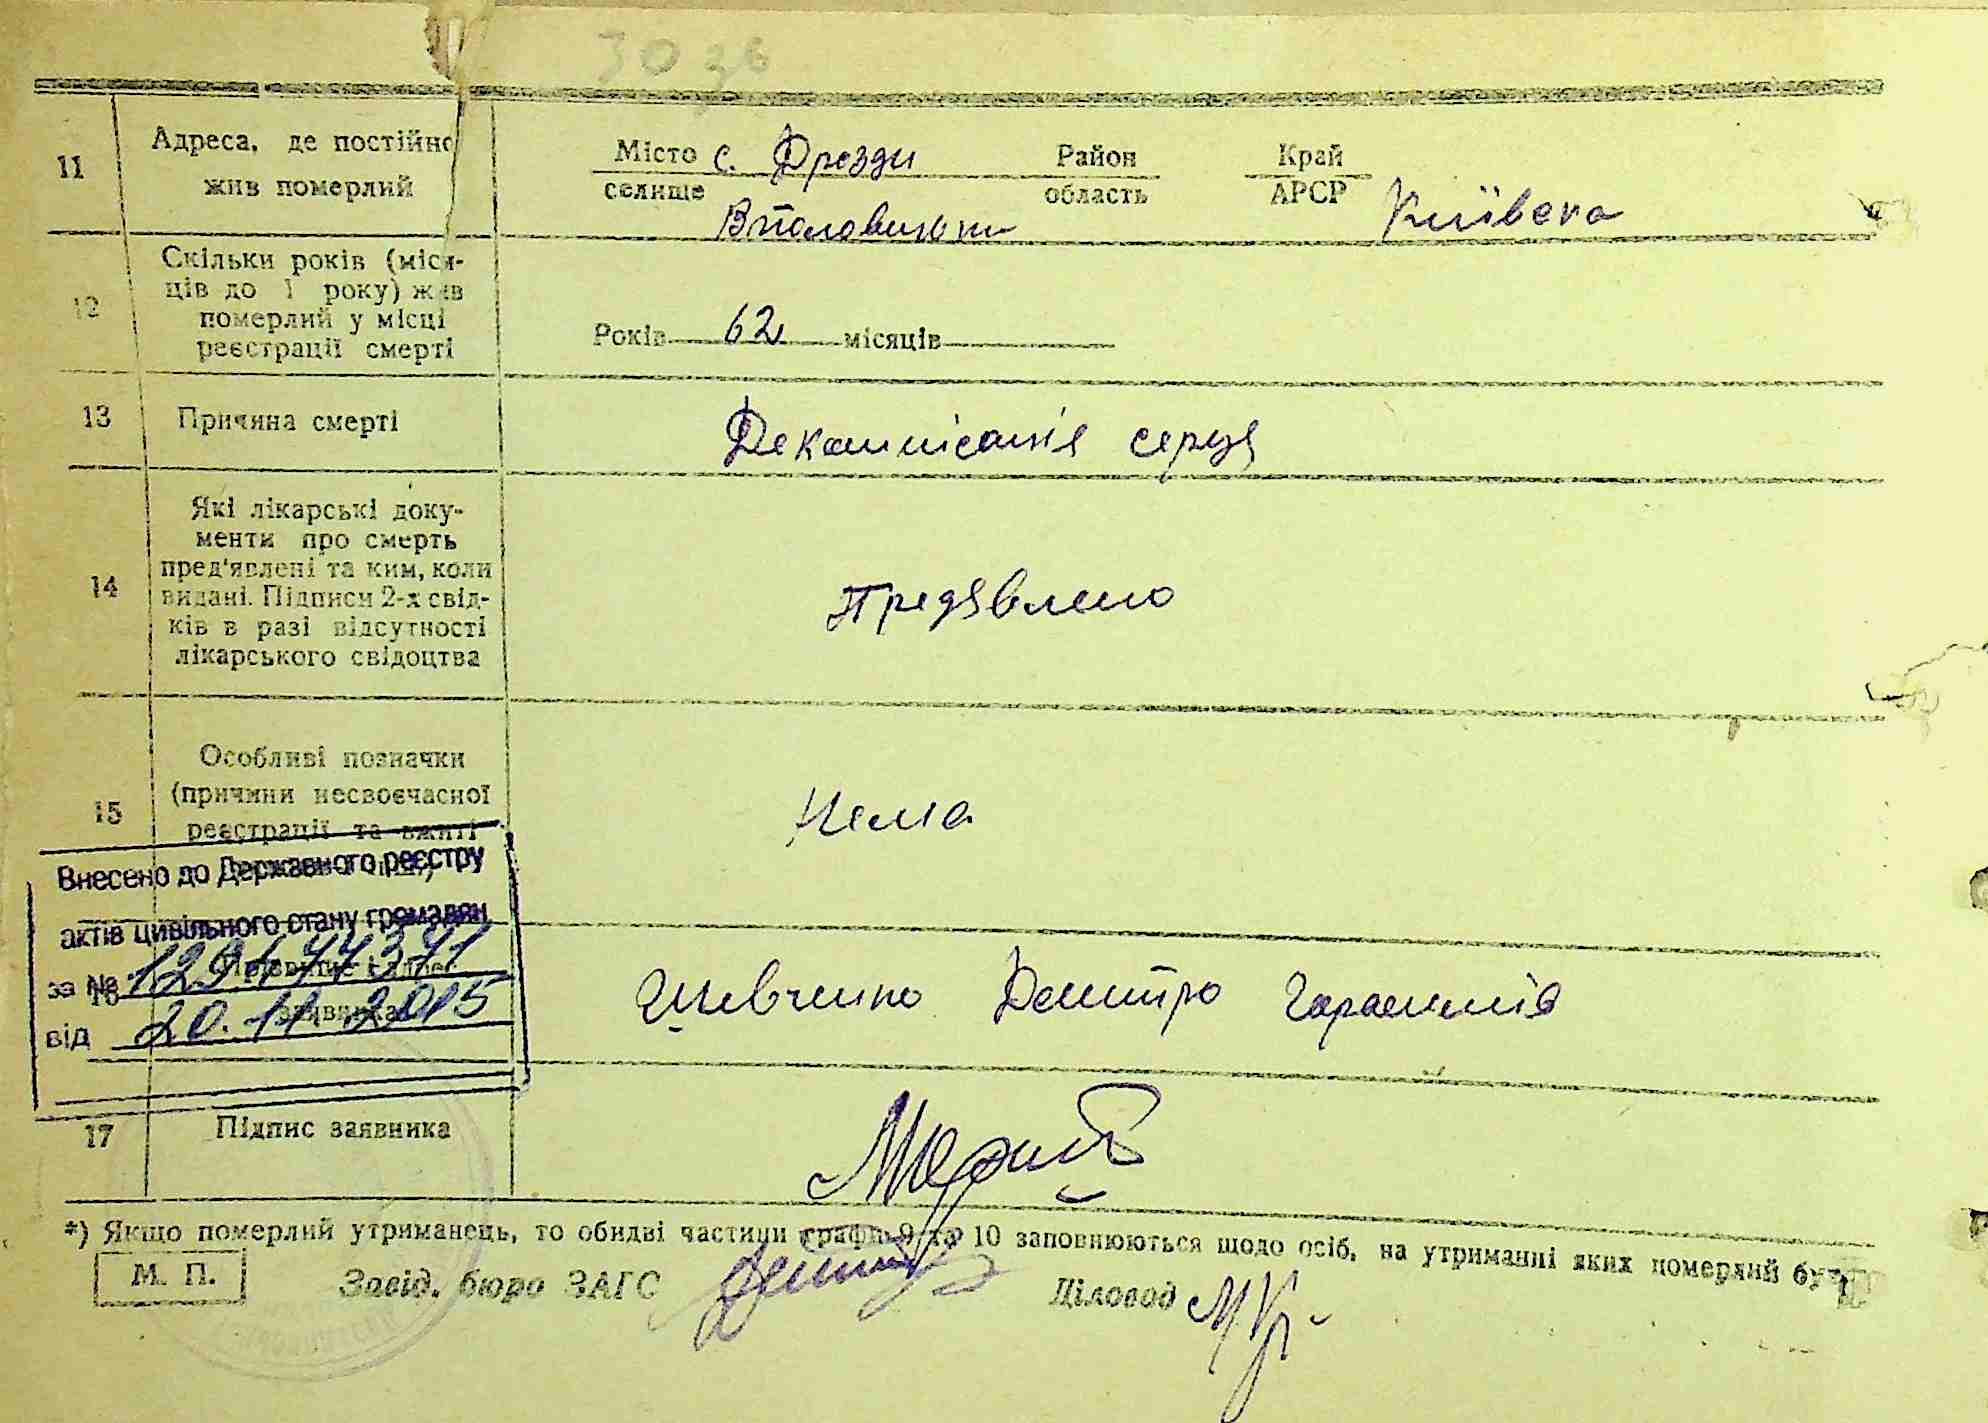 30 зв
11 Адреса, де постійно жив померлий
Місто с. Дрозди Район Край
селище область АРСР Київська
Вполовицьки
12 Скільки років (міся-
ців до 1 року) жив
померлий у місці
реєстрації смерті
Років 62 місяців
13 Причина смерті
серця
14 Які лікарські доку-
менти про смерть
пред'явлені та ким, коли
видані. Підписи 2-х свід-
ків в разі відсутності
лікарського свідоцтва
предявлено
15 Особливі позначки
(причини несвоєчасної
реєстрації та вжиті
Нема
Внесено до Державного реєстру
актів цивільного стану громадян
за №
від 20.11.2015
16
заявника
Шевченко Дмитро
17 Підпис заявника
*) Якщо померлий утриманець, то обидві частини графи 9 та 10 заповнюються щодо осіб, на утриманні яких померлий був.
М. П.
Завід. бюро ЗАГС
Діловод